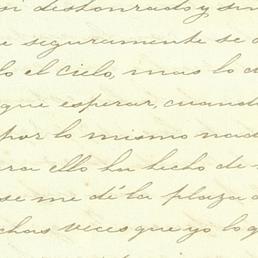 si deshonrado y sin
e seguramente se a
lo el Cielo, mas lo a
que esperar, cuando
por lo mismo nad
ra ello ha hecho de
se me dé la plaza a
chas veces que yo lo q